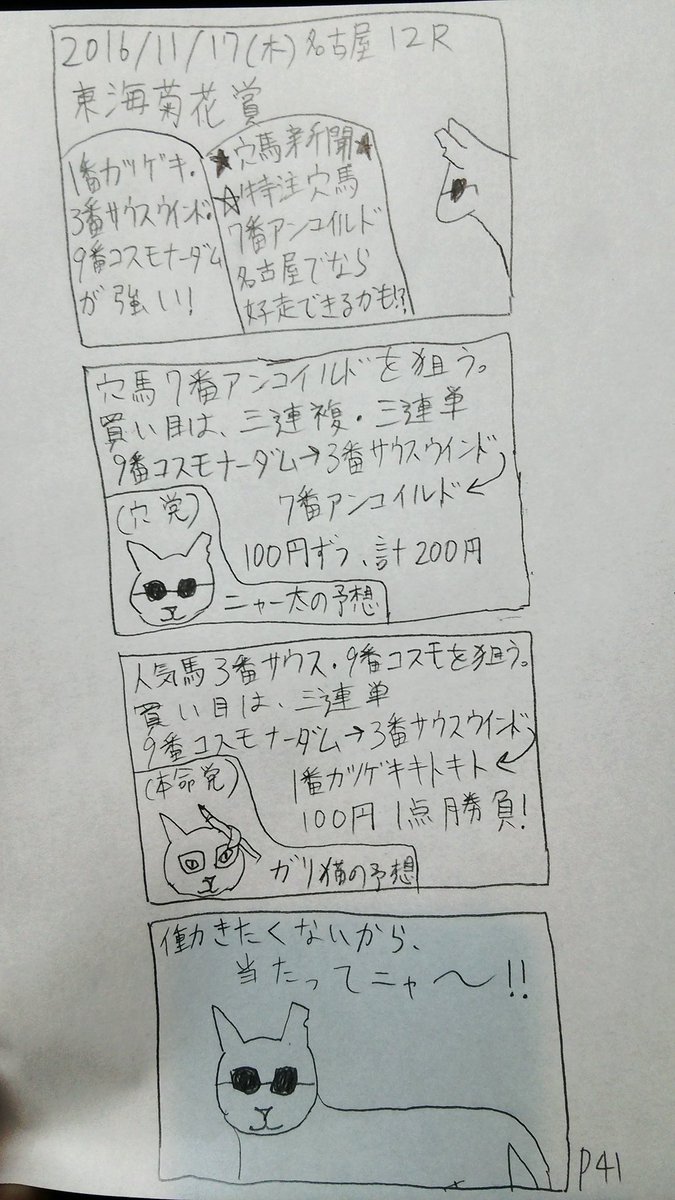 2016/11/17(木)名古屋12R
東海菊花賞
1番ガツゲキ・
3番サウスウインド・
9番コスモナーダム
が強い!
★穴馬新聞★
☆特注穴馬
7番アンコイルド
名古屋でなら
好走できるかも!?
穴馬7番アンコイルドを狙う。
買い目は、三連複・三連単
9番コスモナーダム→3番サウスウインド
7番アンコイルド←
(穴党)
100円ずつ、計200円
ニャー太の予想
人気馬3番サウス・9番コスモを狙う。
買い目は、三連単
9番コスモナーダム→3番サウスウインド
1番ガツゲキキトキト←
(本命党)
100円1点勝負!
ガリ猫の予想
働きたくないから、
当たってニャ〜!!
P41